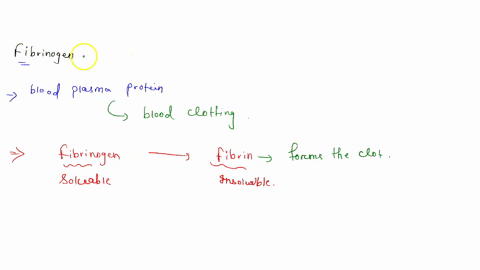 Fibrinogen.
→ blood plasma protein
↳ blood clotting.
⇒ fibrinogen → fibrin → forms the clot.
Soluable Insoluable.